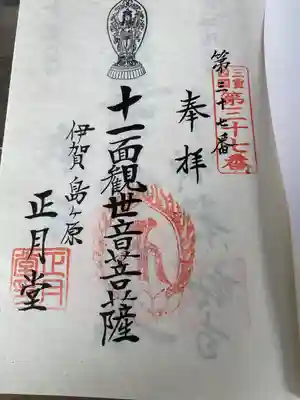 三重
第三十七番
第三十七番
奉拝
十一面観世音菩薩
伊賀島ヶ原
正月堂
正月堂